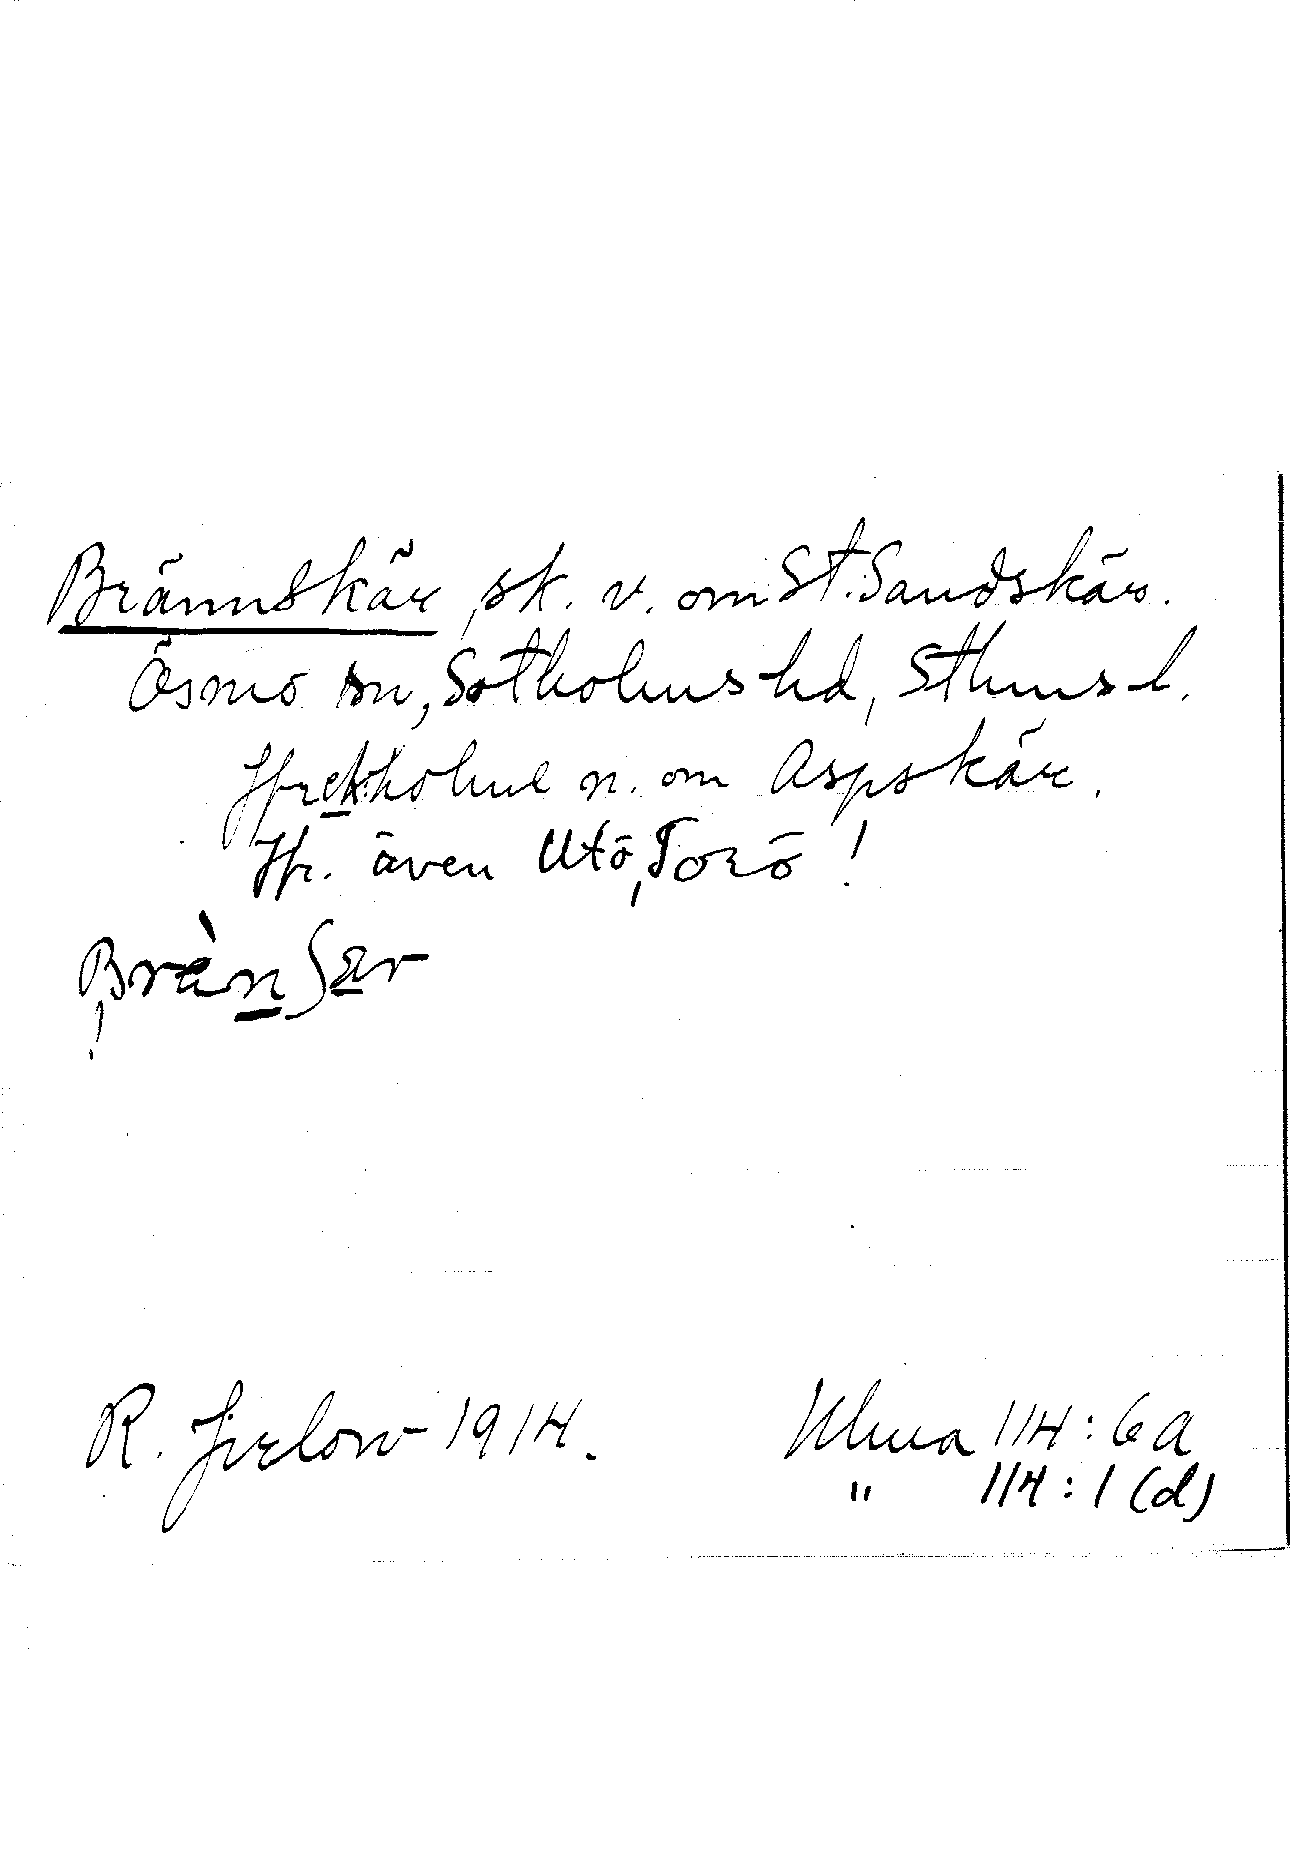 Brännskär, sk. v. om St. Sandskär.
Ösmo sn, Sotholms hd, Sthms l.
Jfr ekholme n. om Aspskär.
Jfr. även Utö, Torö!
Brànʃær
R. Jirlow 1914.
Uluma 114:6a
" 114:1 (d)